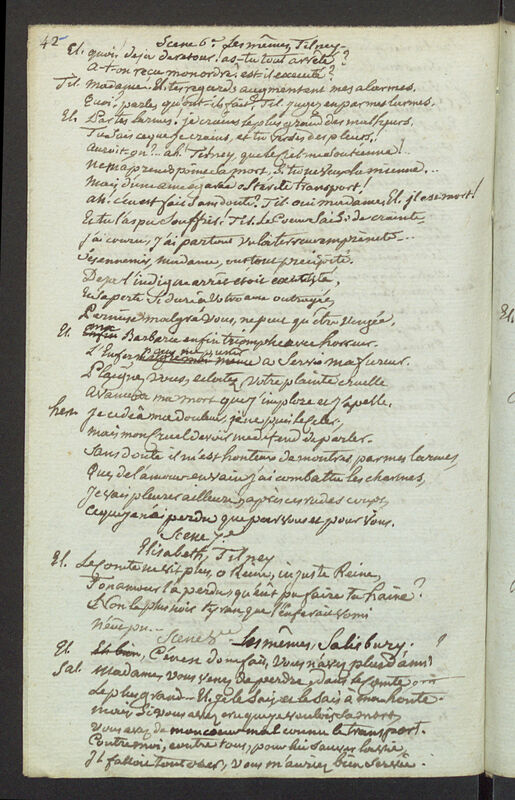 42
Scene 6e. Les mêmes, Tilney.
El. quoi! deja de retour! as-tu tout arrêté?
a-t-on reçu mon ordre? est il executé?
Til. Madame. El. tes regards augmentent mes alarmes.
Quoi? parle, qu'ont-ils fait? Til. jugez en par mes larmes.
El. Par tes larmes! je crains le plus grand des malheurs.
Tu sais ce que je crains, et tu verses des pleurs!
auroit-on? ah! Tilney, que le ciel me soutienne!
ne m'apprends point sa mort, si tu ne veux la mienne...
Mais d'une ame egarée o sterile transport!
ah! c'en est fait sans doute? Til. oui madame, El. il est mort!
Et tu l'as pu souffrir! Til. Le coeur saisi de crainte
j'ai couru, j'ai partout vu la terreur empreinte...
Ses ennemis, madame, ont tout precipité.
Deja l'indigne arrêt étoit exécuté,
Et sa perte si dure à votre ame outragée,
Permise malgré vous, ne peut qu'être vengée.
El. ma Barbarie enfin triomphe avec horreur.
L'Enfer qui me punit a servi ma fureur.
Plaignez vous, eclatez, votre plainte cruelle
avancera ma mort que j'implore et j'apelle.
hen je cede à ma douleur, je ne puis le celer,
mais mon cruel devoir me défend de parler.
Sans doute il m'est honteux de montrer par mes larmes
Que de l'amour en vain j'ai combattu les charmes,
Je vais pleurer ailleurs, après ces rudes coups,
Ce que je n'ai perdu que par vous et pour vous.
Scene 7e
Elisabeth, Tilney
El. Le Comte ne vit plus, o Reine, injuste Reine,
Ton amour l'a perdu, qu'eut pu faire ta haine?
Non le plus noir tyran que l'enfer ait vomi
n'eut pu...
Scene Les mêmes, Salisbury.
El. Et bien, C'en est donc fait, vous n'avez plus d'ami?
Sal. Madame, vous venez de perdre, dans le Comte
Le plus grand. El. je le sais, et le sais à ma honte.
mais, si vous avez cru que je voulois sa mort,
vous avez de mon coeur mal connu le transport.
Contre moi, contre tous, pour lui sauver la vie,
Il falloit tout oser, vous m'auriez bien servie.